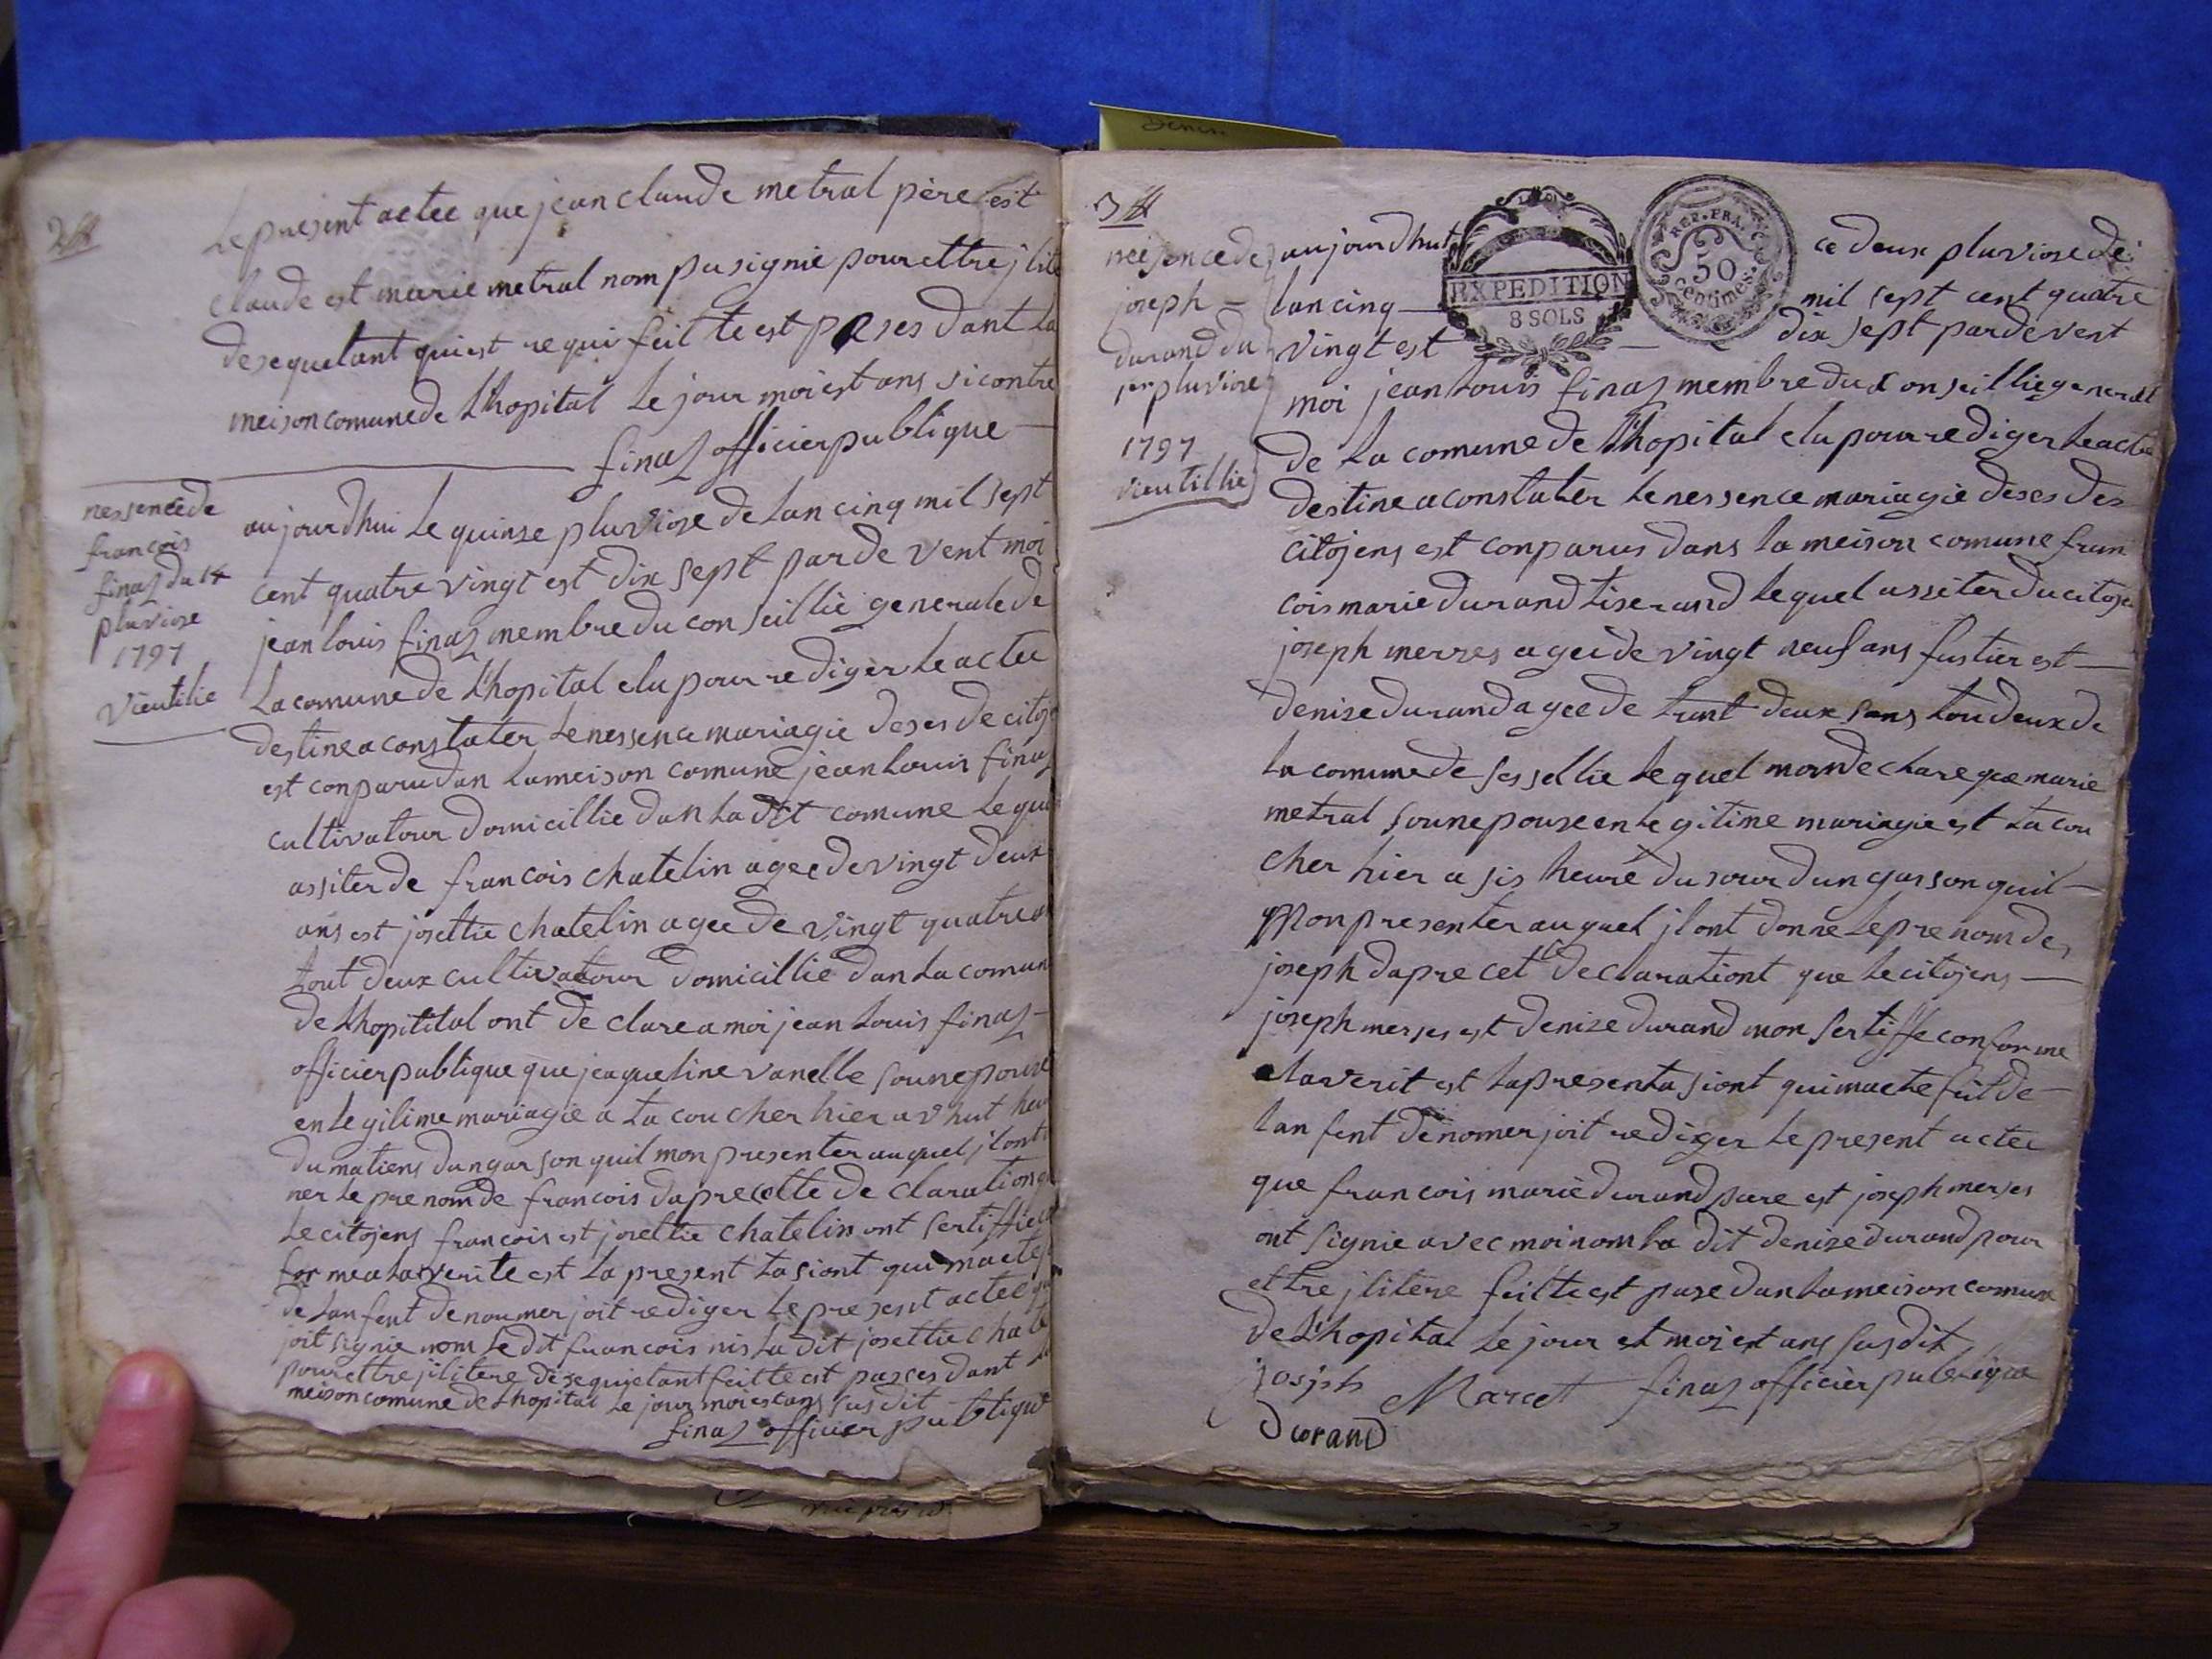 2
Le present actee que jean claude metral père est
claude est marie metral nom pu signie pour ettre jlite
desequetant qui est requi feitte est pases dant La
meison comune de Lhopital Le jour moi est ans si contre
finaz officier publique
nessence de
francois
finaz du 14
pluviose
1797
vieutilie
aujourdhui Le quinse pluviose de Lan cinq mil sept
cent quatre vingt est dix sept par de vent moi
jean louis finaz membre du conseillié generale de
La comune de Lhopital elu pour rediger Le actee
destine a constater Le nessence mariagie deses de citoje
est conparu dan La meison comune jean Louis finaz
cultivatour domicillie dan La dit comune Le que
assiter de francois chatelin agee de vingt deux
ans est josettie chatelin agee de vingt quatre an
tout deux cultivatour domicillie dan La comun
de Lhopitital ont de clare a moi jean Louis finaz
officier publique que jeaqueline vanelle soune pouse
en Le gitime mariagie a La coucher hier a vhut heu
du matiens dun garson quil mon presenter au quel jlont
ner Le prenom de francois dapre cette de claration q
Le citojens francois est josettie chatelin ont sertiffie
for me a La verite est La present tasiont qui maete
de Lan fent de noumer joit rediger Le present actee
joit signie nom Le dit francois nis La dit josettie chate
pour ettre jlitere desequietant feitte est passes dant La
meison comune de Lhopital Le jour moi est ans sus dit
finaz officier publique
3
neisence de
joseph
durand du
1er pluviose
1797
vieutillie
REP. FRA.
50
centimes
EXPEDITION
8 SOLS
aujourdhut ce deux pluviose de
lan cinq mil sept cent quatre
vingt est dix sept par de vent
moi jean Louis finaz membre du conseillie generalt
de La comune de Lhopital elu pour rediger Le actee
destine a constater Le nessence mariagie deses des
citojens est conparus dans La meison comune fran
cois marie durand tiserand Le quel assiter du citoje
joseph merzes agei de vingt neuf ans fustier est
denise durand agee de trent deux sans tou deux de
La comune de sessellie Le quel mon de clare que marie
metral soune pouse en Le gitime mariagie est La cou
cher hier a sis heure du sour dun gasson quil
mon presenter au quel jlont donne Le prenom de
joseph dapre cett declarationt que Le citojens
joseph merses est denize durand mon sertiffe conforme
a La verit est La presentasiont qui maete fuit de
Lan fent denomer joit rediger Le present actee
que francois marie durand pare est joseph merses
ont signie avec moi nom La dit denize durand pour
ettre jlitere feitte est pase dan La meison comune
de Lhopital Le jour et moi est ans sus dit
josjph Marcet finaz officier publique
durand